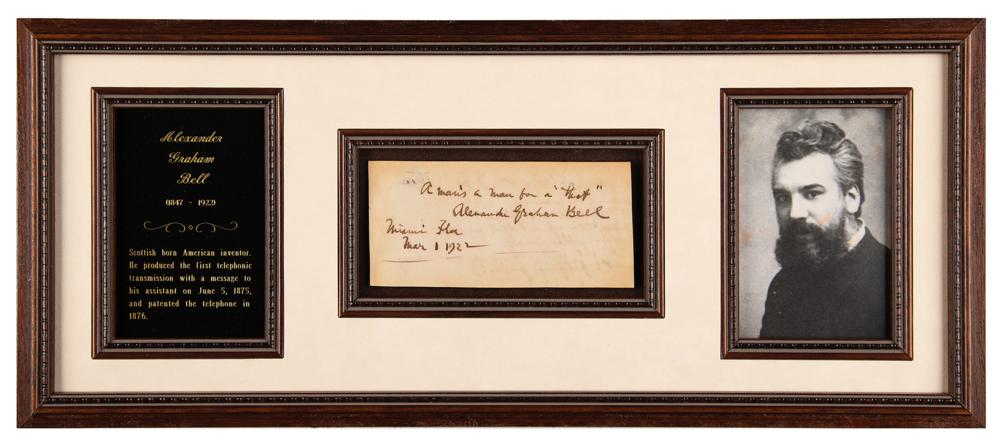 Alexander
Graham
Bell
(1847 - 1922)
Scottish born American inventor.
He produced the first telephonic
transmission with a message to
his assistant on June 5, 1875,
and patented the telephone in
1876.
A man's a man for a' that"
Alexander Graham Bell
Miami Flor
Mar 1 1922